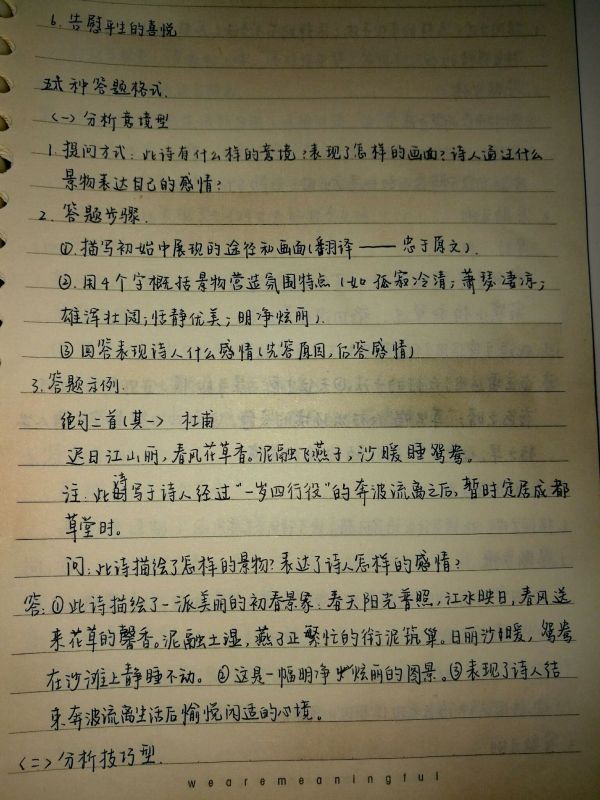 6. 告慰平生的喜悦
五大种答题格式.
<一> 分析意境型
1. 提问方式: 此诗有什么样的意境?表现了怎样的画面?诗人通过什么
景物表达自己的感情?
2. 答题步骤.
①. 描写初始中展现的途径和画面(翻译——忠于原文).
②. 用4个字概括景物营造氛围特点 (如 孤寂冷清; 萧瑟凄凉;
雄浑壮阔; 恬静优美; 明净炫丽).
③ 回答表现诗人什么感情 (先答原因, 后答感情)
3. 答题示例.
绝句二首(其一) 杜甫
迟日江山丽, 春风花草香。泥融飞燕子, 沙暖睡鸳鸯。
注: 此诗写于诗人经过“一岁四行役”的奔波流离之后, 暂时定居成都
草堂时。
问: 此诗描绘了怎样的景物? 表达了诗人怎样的感情?
答: ①此诗描绘了一派美丽的初春景象: 春天阳光普照, 江水映日, 春风送
来花草的馨香。泥融土湿, 燕子正繁忙的衔泥筑巢。日丽沙暖, 鸳鸯
在沙滩上静睡不动。②这是一幅明净炫丽的图景。③表现了诗人结
束奔波流离生活后愉悦闲适的心境。
<二> 分析技巧型.
wearemeaningful